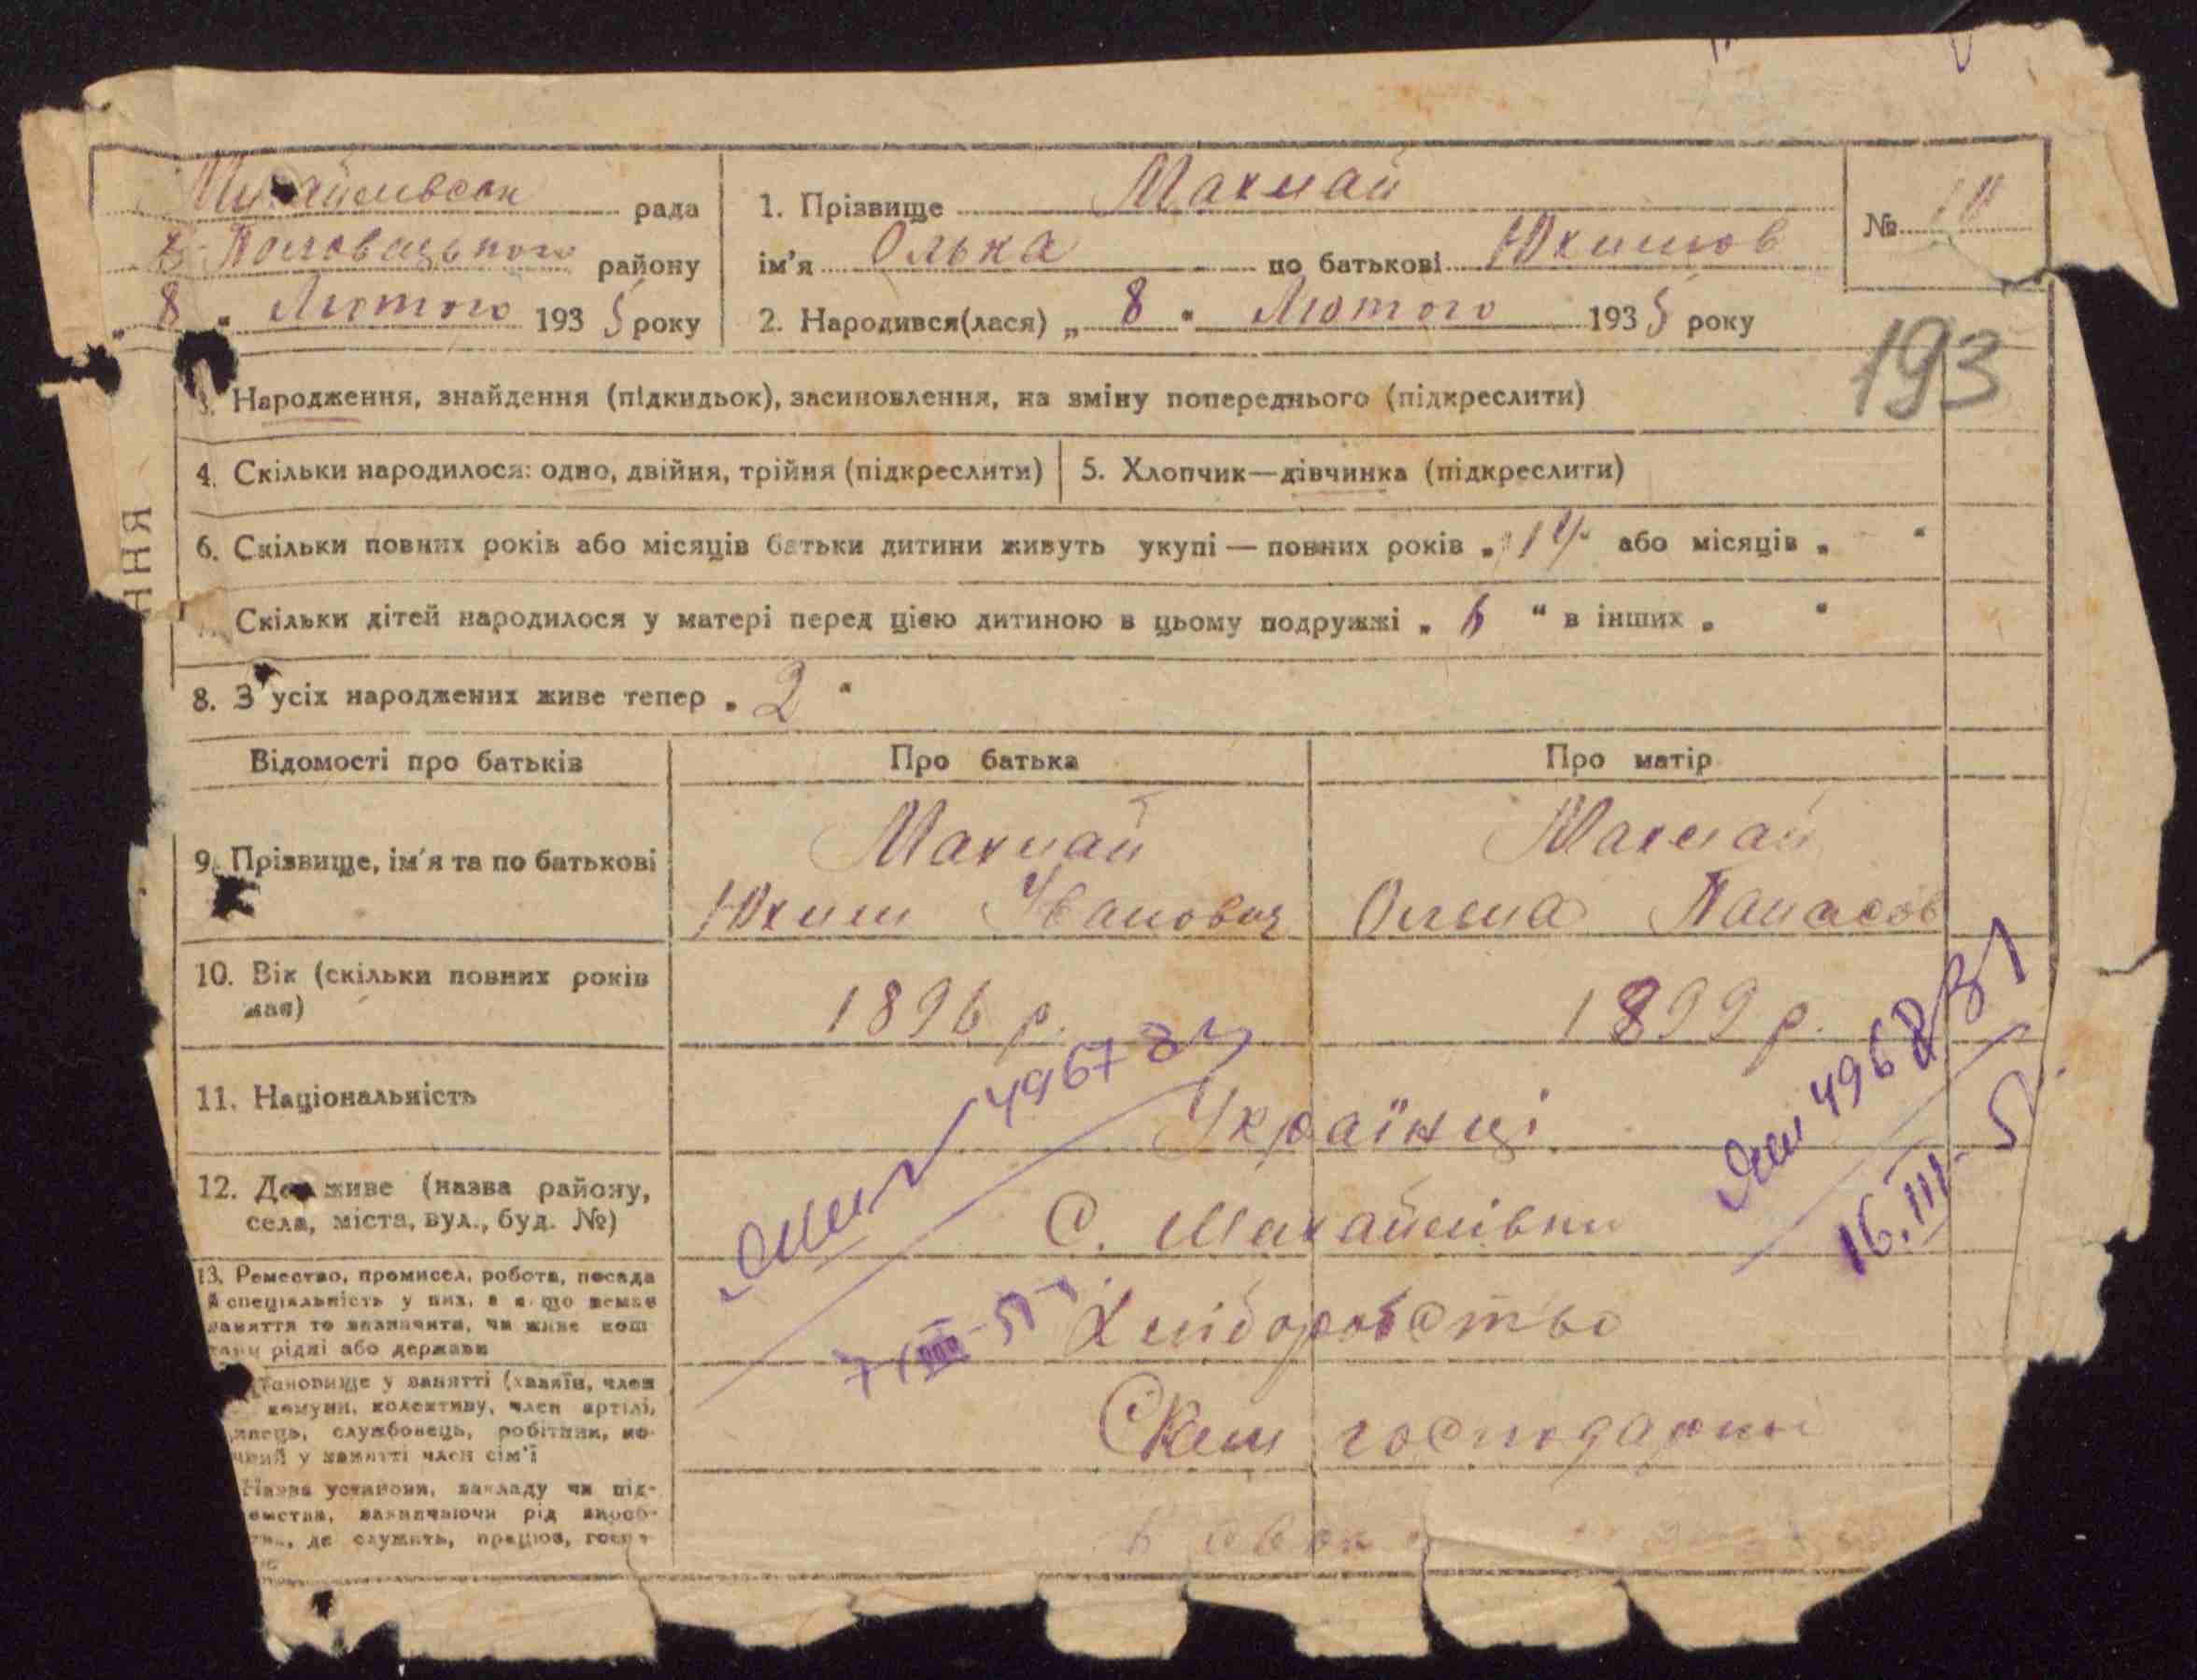 Михайлівськ рада
району
„ 8 “ Лютого 1935 року
1. Прізвище Махнай
ім'я Олька по батькові Юхимов
2. Народився(лася) „ 8 “ Лютого 1935 року
№
193
3. Народження, знайдення (підкидьок), засиновлення, на зміну попереднього (підкреслити)
4. Скільки народилося: одно, двійня, трійня (підкреслити)
5. Хлопчик—дівчинка (підкреслити)
6. Скільки повних років або місяців батьки дитини живуть укупі — повних років „ 14 або місяців „ “
Скільки дітей народилося у матері перед цією дитиною в цьому подружжі „ 6 “ в інших „ “
8. З усіх народжених живе тепер „ 2 “
Відомості про батьків
Про батька
Про матір
9. Прізвище, ім'я та по батькові
Махнай
Юхим Іванович
Махнай
Панасов
10. Вік (скільки повних років має)
1896 р.
1899 р.
11. Національність
Українці
12. Де живе (назва району,
села, міста, вул., буд. №)
с. Михайлівки
13. Ремество, промисел, робота, посада
й спеціяльність у них, а якщо немає
заняття то зазначити, чи живе кош
рідні або держави
Хліборобство
тановище у занятті (хазяїн, член
комуни, колективу, член артілі,
службовець, робітник,
у занятті член сім'ї
господарки
Назва установи, закладу чи під-
зазначаючи рід вироб-
де служить, працює,
16.III-
ННЯ